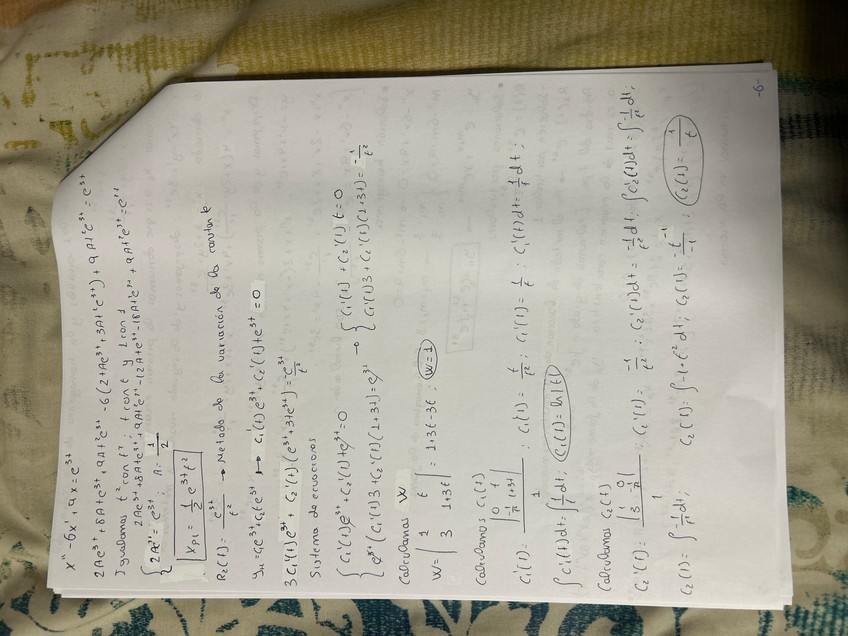 x'' - 6x', 9x = e^3t
2Ae^3t + 8A+e^3t + 9A+²e^3t - 6(2+Ae^3t + 3A+²e^3t) + 9A+²e^3t = e^3t
Igualamos t² con t²; t con t y 1 con 1
2Ae^3t + 8A+e^3t + 9A+²e^3t - 12A+e^3t - 18A+²e^3t + 9A+²e^3t = e^3t
{ 2Ae^3t = e^3t ; A = 1/2
x_P1 = 1/2 e^3t t²
R2(t) = e^3t/t² → Metodo de la variación de la constante
y_H = C1e^3t + C2te^3t → C1'(t)e^3t + C2'(t)te^3t = 0
3C1'(t)e^3t + C2'(t)·(e^3t + 3te^3t) = -e^3t/t²
Sistema de ecuaciones
{ C1'(t)e^3t + C2'(t)te^3t = 0 → { C1'(t) + C2'(t)t = 0
{ e^3t(C1'(t)3 + C2'(t)(1+3t) = e^3t { C1'(t)3 + C2'(t)(1+3t) = -1/t²
Calculamos W
W = | 1 t ; 3 1+3t | = 1+3t-3t ; W=1
Calculamos C1(t)
C1'(t) = | 0 t ; -1/t² 1+3t | / 1 ; C1(t) = t/t² ; C1'(t) = 1/t ; C1'(t)dt = 1/t dt ;
∫C1'(t)dt = ∫1/t dt ; C1(t) = ln|t|
Calculamos C2(t)
C2'(t) = | 1 0 ; 3 -1/t² | / 1 ; C2'(t) = -1/t² ; C2'(t)dt = -1/t² dt ; ∫C2'(t)dt = ∫-1/t² dt ;
C2(t) = ∫-1/t² dt ; C2(t) = ∫-1·t^-2 dt ; C2(t) = -t^-1/-1 ; C2(t) = 1/t
-6-